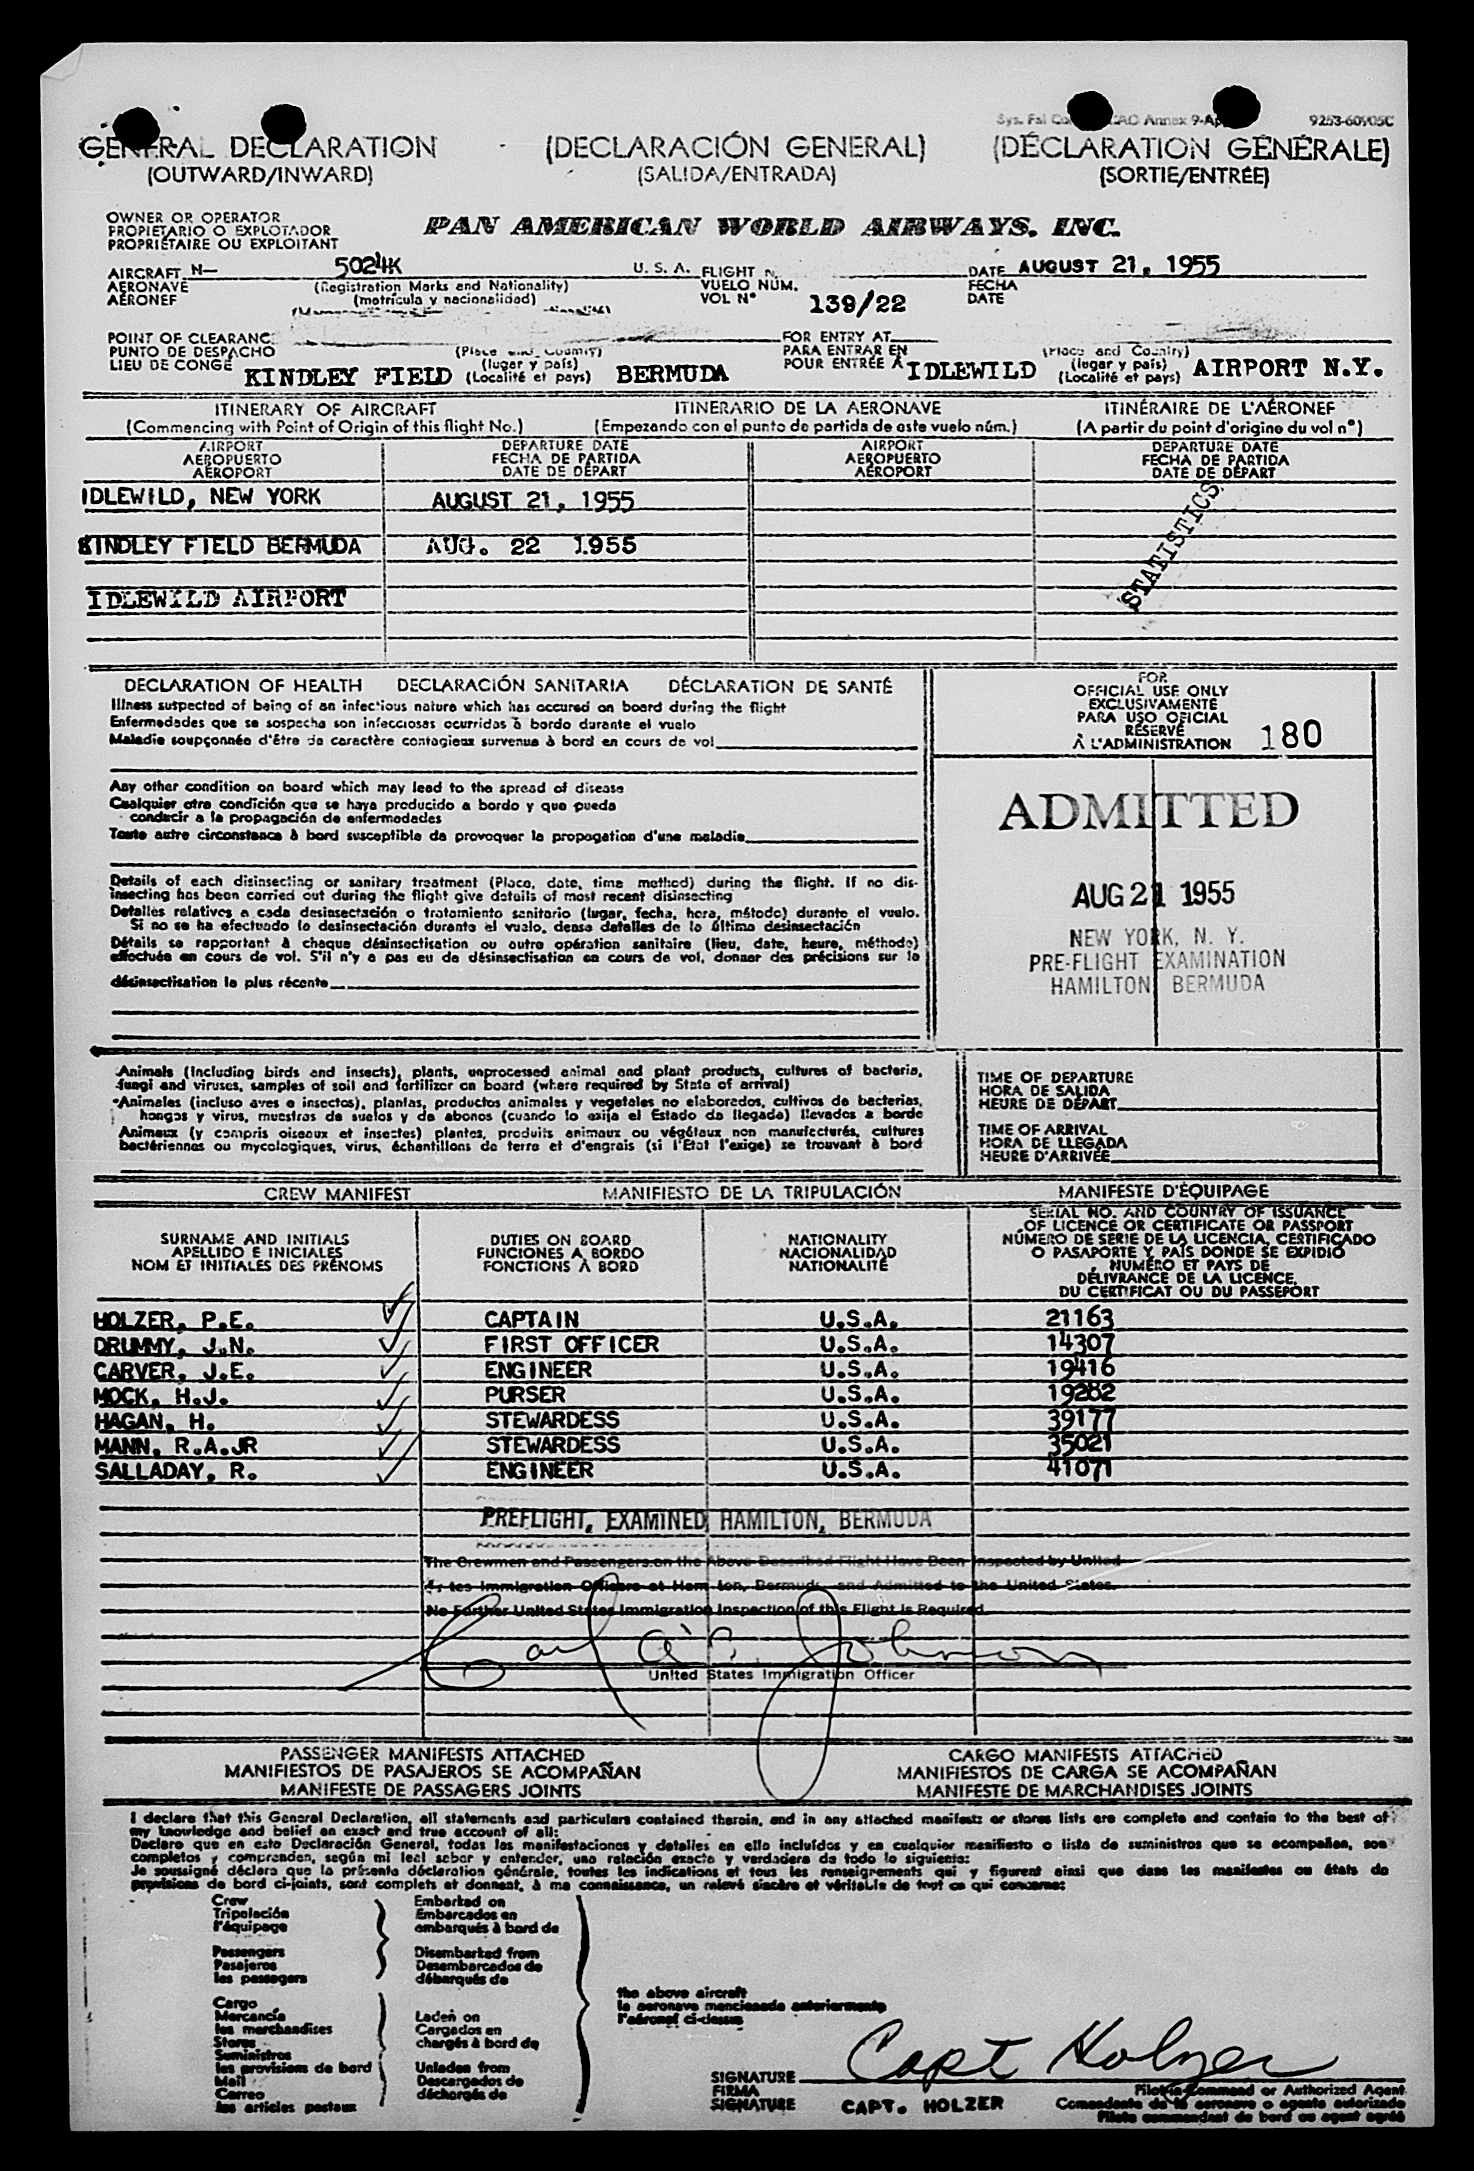 9253-60905C
GENERAL DECLARATION (DECLARACIÓN GENERAL) (DÉCLARATION GÉNÉRALE)
(OUTWARD/INWARD) (SALIDA/ENTRADA) (SORTIE/ENTRÉE)
OWNER OR OPERATOR
PROPIETARIO O EXPLOTADOR
PROPRIÉTAIRE OU EXPLOITANT
PAN AMERICAN WORLD AIRWAYS, INC.
AIRCRAFT N— 5024K U. S. A. FLIGHT N. DATE AUGUST 21, 1955
AERONAVE (Registration Marks and Nationality) VUELO NÚM. FECHA
AÉRONEF (matrícula y nacionalidad) VOL N° 139/22 DATE
POINT OF CLEARANC FOR ENTRY AT
PUNTO DE DESPACHO (Place and Country) PARA ENTRAR EN (Place and Country)
LIEU DE CONGÉ KINDLEY FIELD (lugar y país) (Localité et pays) BERMUDA POUR ENTRÉE À IDLEWILD (lugar y país) (Localité et pays) AIRPORT N.Y.
ITINERARY OF AIRCRAFT ITINERARIO DE LA AERONAVE ITINÉRAIRE DE L'AÉRONEF
(Commencing with Point of Origin of this flight No.) (Empezando con el punto de partida de este vuelo núm.) (A partir du point d'origine du vol n°)
AIRPORT DEPARTURE DATE AIRPORT DEPARTURE DATE
AEROPUERTO FECHA DE PARTIDA AEROPUERTO FECHA DE PARTIDA
AÉROPORT DATE DE DÉPART AÉROPORT DATE DE DÉPART
IDLEWILD, NEW YORK AUGUST 21, 1955
KINDLEY FIELD BERMUDA AUG. 22 1955
IDLEWILD AIRPORT
STATISTICS
DECLARATION OF HEALTH DECLARACIÓN SANITARIA DÉCLARATION DE SANTÉ
Illness suspected of being of an infectious nature which has occured on board during the flight
Enfermedades que se sospecha son infecciosas ocurridas a bordo durante el vuelo
Maladie soupçonnée d'être de caractère contagieux survenue à bord en cours de vol
FOR
OFFICIAL USE ONLY
EXCLUSIVAMENTE
PARA USO OFICIAL
RÉSERVÉ
À L'ADMINISTRATION 180
Any other condition on board which may lead to the spread of disease
Cualquier otra condición que se haya producido a bordo y que pueda
conducir a la propagación de enfermedades
Toute autre circonstance à bord susceptible de provoquer la propagation d'une maladie
ADMITTED
AUG 21 1955
NEW YORK, N. Y.
PRE-FLIGHT EXAMINATION
HAMILTON BERMUDA
Details of each disinsecting or sanitary treatment (Place, date, time method) during the flight. If no dis-
insecting has been carried out during the flight give details of most recent disinsecting
Detalles relativos a cada desinsectación o tratamiento sanitario (lugar, fecha, hora, método) durante el vuelo.
Si no se ha efectuado la desinsectación durante el vuelo, dense detalles de la última desinsectación
Détails se rapportant à chaque désinsectisation ou autre opération sanitaire (lieu, date, heure, méthode)
effectuée en cours de vol. S'il n'y a pas eu de désinsectisation en cours de vol, donner des précisions sur la
désinsectisation la plus récente
Animals (Including birds and insects), plants, unprocessed animal and plant products, cultures of bacteria,
fungi and viruses, samples of soil and fertilizer on board (where required by State of arrival)
Animales (incluso aves e insectos), plantas, productos animales y vegetales no elaborados, cultivos de bacterias,
hongos y virus, muestras de suelos y de abonos (cuando lo exija el Estado de llegada) llevados a bordo
Animaux (y compris oiseaux et insectes) plantes, produits animaux ou végétaux non manufacturés, cultures
bactériennes ou mycologiques, virus, échantillons de terre et d'engrais (si l'Etat l'exige) se trouvant à bord
TIME OF DEPARTURE
HORA DE SALIDA
HEURE DE DÉPART
TIME OF ARRIVAL
HORA DE LLEGADA
HEURE D'ARRIVÉE
CREW MANIFEST MANIFIESTO DE LA TRIPULACIÓN MANIFESTE D'ÉQUIPAGE
SURNAME AND INITIALS
APELLIDO E INICIALES
NOM ET INITIALES DES PRÉNOMS
DUTIES ON BOARD
FUNCIONES A BORDO
FONCTIONS À BORD
NATIONALITY
NACIONALIDAD
NATIONALITÉ
SERIAL NO. AND COUNTRY OF ISSUANCE
OF LICENCE OR CERTIFICATE OR PASSPORT
NÚMERO DE SERIE DE LA LICENCIA, CERTIFICADO
O PASAPORTE Y PAÍS DONDE SE EXPIDIÓ
NUMÉRO ET PAYS DE
DÉLIVRANCE DE LA LICENCE,
DU CERTIFICAT OU DU PASSEPORT
HOLZER, P.E. CAPTAIN U.S.A. 21163
DRUMMY, J.N. FIRST OFFICER U.S.A. 14307
CARVER, J.E. ENGINEER U.S.A. 19416
MOCK, H.J. PURSER U.S.A. 19282
HAGAN, H. STEWARDESS U.S.A. 39177
MANN, R.A.JR STEWARDESS U.S.A. 35021
SALLADAY, R. ENGINEER U.S.A. 41071
PREFLIGHT, EXAMINED, HAMILTON, BERMUDA
The Crewmen and Passengers on the Above Described Flight Have Been Inspected by United
States Immigration Officers at Hamilton, Bermuda and Admitted to the United States.
No Further United States Immigration Inspection of this Flight is Required.
United States Immigration Officer
PASSENGER MANIFESTS ATTACHED CARGO MANIFESTS ATTACHED
MANIFIESTOS DE PASAJEROS SE ACOMPAÑAN MANIFIESTOS DE CARGA SE ACOMPAÑAN
MANIFESTE DE PASSAGERS JOINTS MANIFESTE DE MARCHANDISES JOINTS
I declare that this General Declaration, all statements and particulars contained therein, and in any attached manifests or stores lists are complete and contain to the best of
my knowledge and belief an exact and true account of all:
Declaro que en esta Declaración General, todas las manifestaciones y detalles en ella incluídos y en cualquier manifiesto o lista de suministros que se acompañan, son
completos y comprenden, según mi leal saber y entender, una relación exacta y verdadera de todo lo siguiente:
Je soussigné déclara que la présente déclaration générale, toutes les indications et tous les renseignements qui y figurent ainsi que dans les manifestes ou états de
provisions de bord ci-joints, sont complets et donnent, à ma connaissance, un relevé sincère et véritable de tout ce qui concerne:
Crew Embarked on
Tripolación Embarcados en
l'équipage embarqués à bord de
Passengers Disembarked from
Pasajeros Desembarcados de
les passagers débarqués de
the above aircraft
la aeronave mencionada anteriormente
l'aéronef ci-dessus
Cargo
Mercancía Laden on
les marchandises Cargados en
Stores chargés à bord de
Suministros
les provisions de bord Unladen from
Mail Descargados de
Correo déchargés de
les articles postaux
Capt Holzer
SIGNATURE
FIRMA
SIGNATURE CAPT. HOLZER
Pilot-in-Command or Authorized Agent
Comandante de la aeronave o agente autorizado
Pilote commandant de bord ou agent agréé